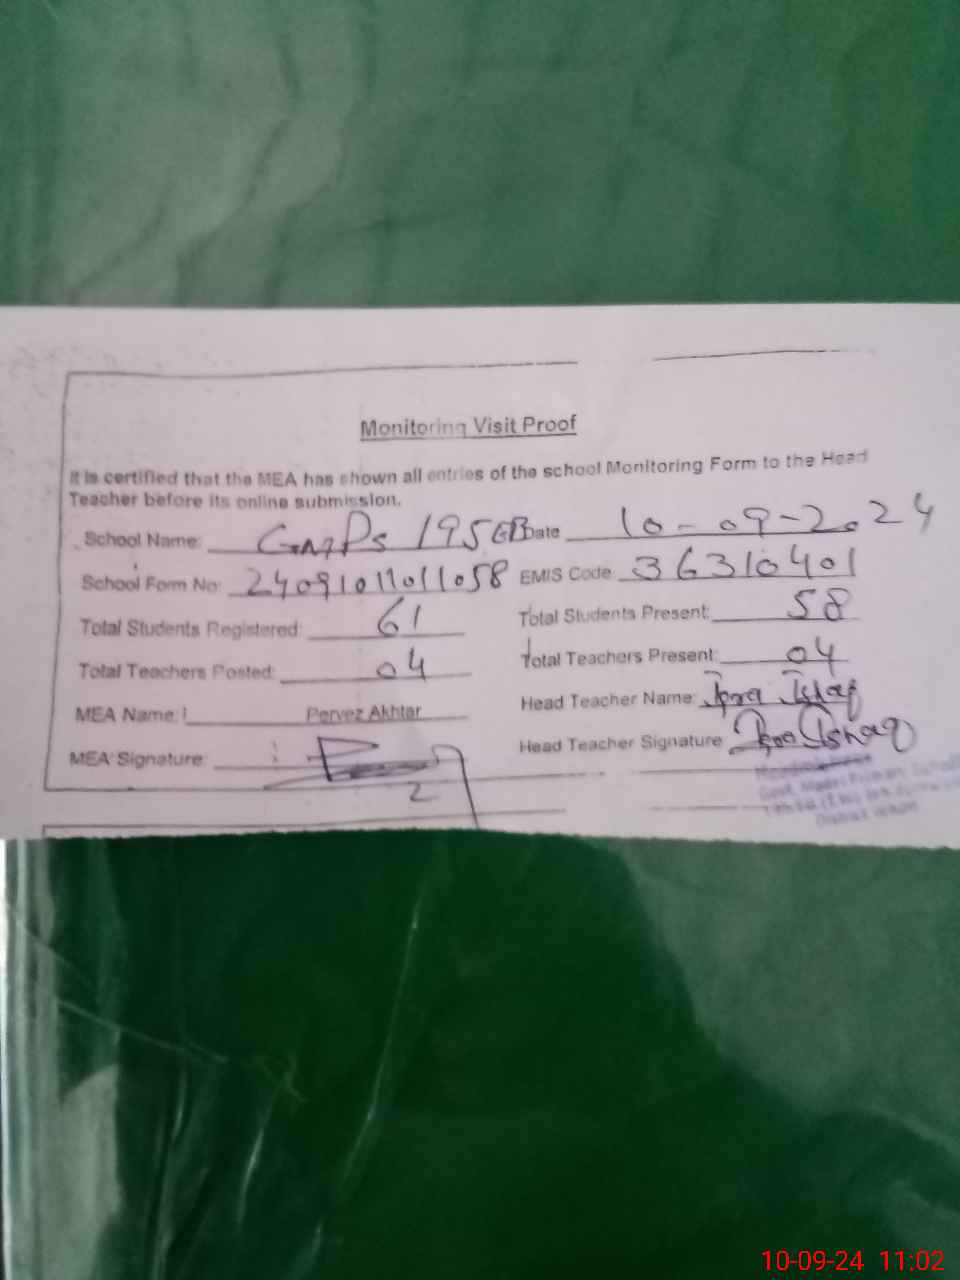 Monitoring Visit Proof
It is certified that the MEA has shown all entries of the school Monitoring Form to the Head
Teacher before its online submission.
School Name: GMPS 195 EB Date 10-09-2024
School Form No: 24091011011058 EMIS Code 36310401
Total Students Registered: 61 Total Students Present: 58
Total Teachers Posted: 04 Total Teachers Present: 04
MEA Name: Pervez Akhtar Head Teacher Name: Iqra Ishaq
MEA Signature: Head Teacher Signature Iqra Ishaq
2
District
10-09-24 11:02